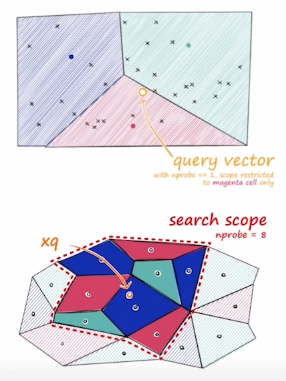 query vector
with nprobe == 1, scope restricted
to magenta cell only
search scope
nprobe = 8
xq